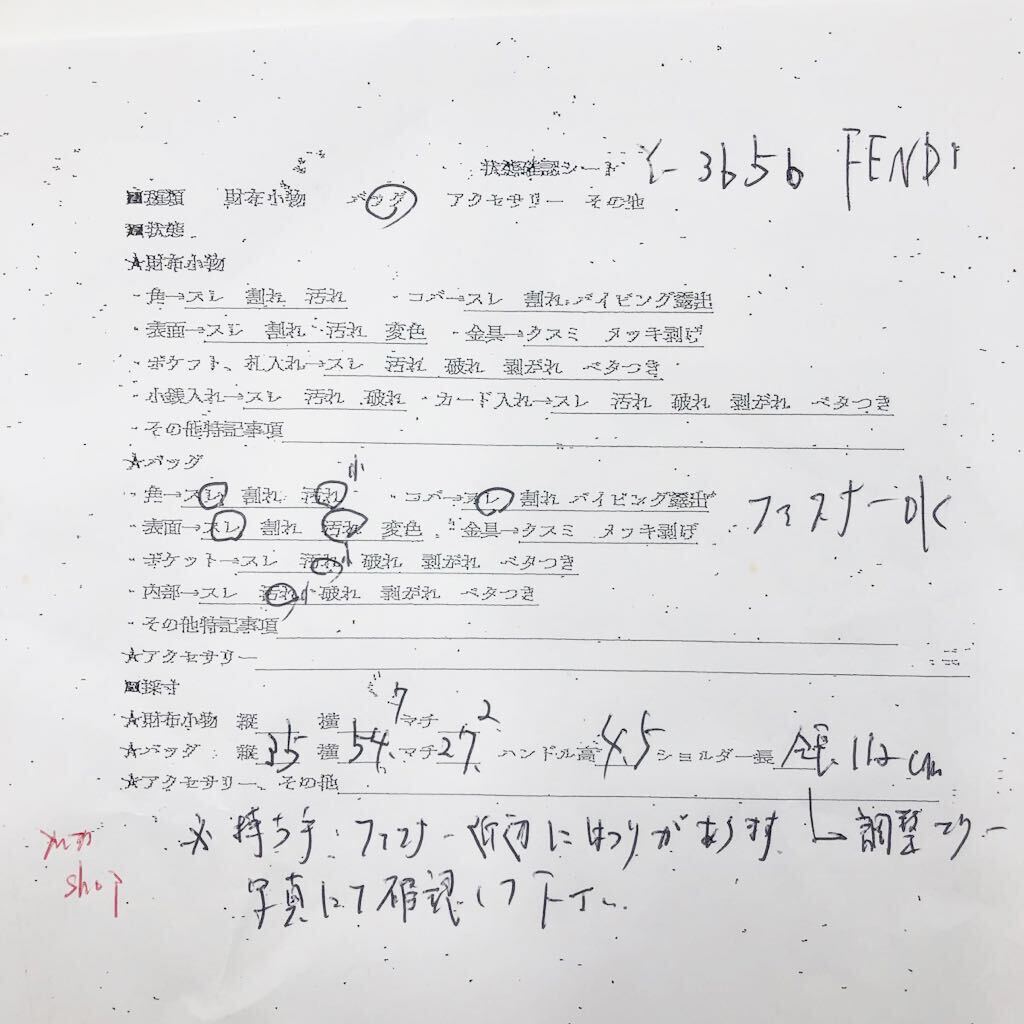 状態確認シート 3656 FENDI
■種類 財布小物 バッグ アクセサリー その他
■状態
★財布小物
・角→スレ 割れ 汚れ ・コバ→スレ 割れ パイピング露出
・表面→スレ 割れ 汚れ 変色 ・金具→クスミ メッキ剥げ
・ポケット、札入れ→スレ 汚れ 破れ 剥がれ ベタつき
・小銭入れ→スレ 汚れ 破れ ・カード入れ→スレ 汚れ 破れ 剥がれ ベタつき
・その他特記事項
★バッグ
・角→スレ 割れ 汚れ小 ・コバ→スレ 割れ パイピング露出
ファスナーOK
・表面→スレ 割れ 汚れ 変色 ・金具→クスミ メッキ剥げ
・ポケット→スレ 汚れ小 破れ 剥がれ ベタつき
・内部→スレ 汚れ小 破れ 剥がれ ベタつき
・その他特記事項
★アクセサリー
■採寸
★財布小物 縦 横 マチ
★バッグ 縦35 横54.7 マチ27.2 ハンドル高4.5 ショルダー長 全長112cm
★アクセサリー、その他
※持ち手、ファスナー にほつりがあります 調整
写真にて確認して下さい。
shop